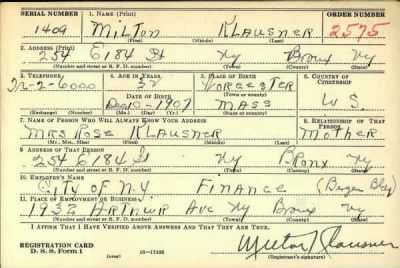 SERIAL NUMBER 1. NAME (Print) ORDER NUMBER
1409 MILTON KLAUSNER 2575
(First) (Middle) (Last)
2. ADDRESS (Print)
254 E 184 St NY Bronx NY
(Number and street or R. F. D. number) (Town) (County) (State)
3. TELEPHONE 4. AGE IN YEARS 5. PLACE OF BIRTH 6. COUNTRY OF CITIZENSHIP
2-6000 32 WORCESTER
DATE OF BIRTH (Town or county)
Dec 10-1907 MASS U S.
(Exchange) (Number) (Mo.) (Day) (Yr.) (State or country)
7. NAME OF PERSON WHO WILL ALWAYS KNOW YOUR ADDRESS 8. RELATIONSHIP OF THAT PERSON
MRS ROSE KLAUSNER MOTHER
(Mr., Mrs., Miss) (First) (Middle) (Last)
9. ADDRESS OF THAT PERSON
254 E 184 St NY Bronx NY
(Number and street or R. F. D. number) (Town) (County) (State)
10. EMPLOYER'S NAME
CITY OF N.Y FINANCE (Bergen Bldg)
11. PLACE OF EMPLOYMENT OR BUSINESS
1932 ARTHUR Ave NY Bronx NY
(Number and street or R. F. D. number) (Town) (County) (State)
I AFFIRM THAT I HAVE VERIFIED ABOVE ANSWERS AND THAT THEY ARE TRUE.
REGISTRATION CARD
D. S. S. Form 1 (over) 16-17105 Milton Klausner
(Registrant's signature)